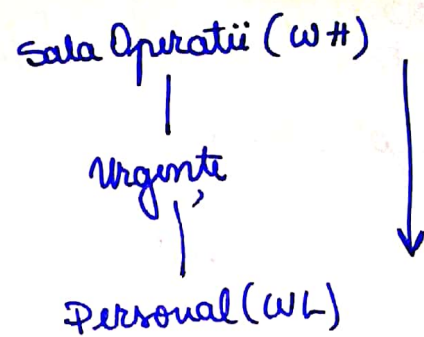 Sala Operatii (WH)
Urgențe
Personal (WL)